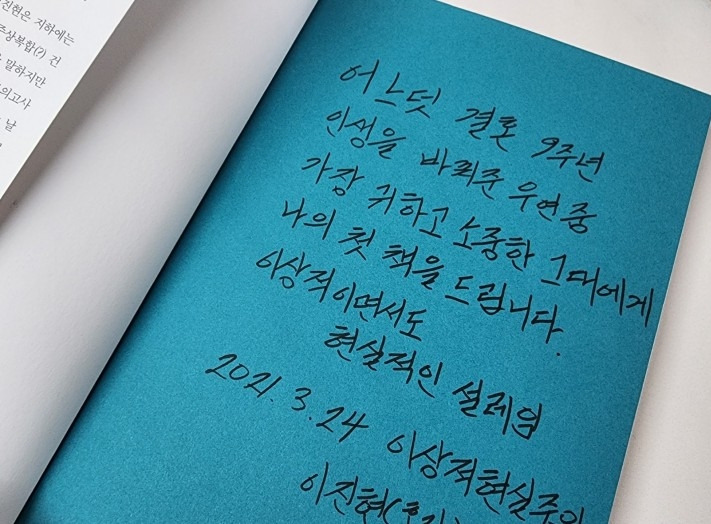 진현은 지하에는
주상복합(?) 건
말하지만
의고사
날
어느덧 결혼 9주년
인생을 바꿔준 우연 중
가장 귀하고 소중한 그대에게
나의 첫 책을 드립니다.
이상적이면서도
현실적인 설레임
2021.3.24 이상적현실주의
이진현